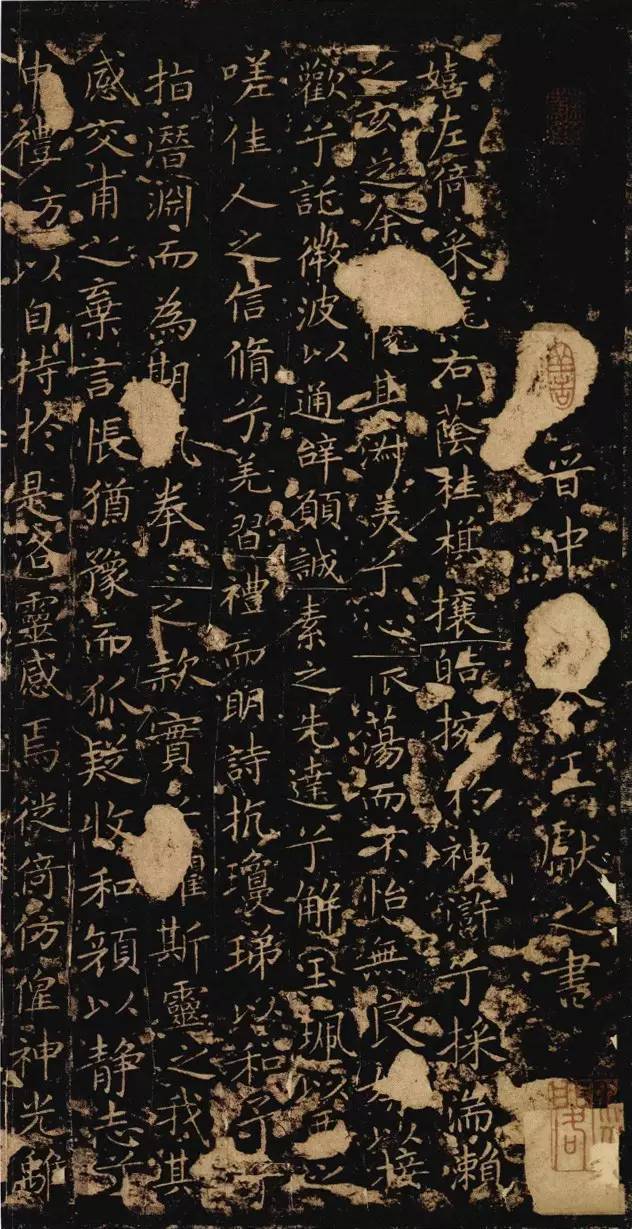 晉中令王獻之書
嬉左倚采旄右蔭桂旗攘皓捥於神滸兮採湍瀨
之玄芝余其淑美兮心振蕩而不怡無良以接
歡兮託微波以通辝願誠素之先達兮解玉珮以要之
嗟佳人之信脩兮羌習禮而明詩抗瓊珶以和予兮
指潛淵而為期執拳〻之款實兮懼斯靈之我其
感交甫之棄言悵猶豫而狐疑收和顏以静志兮
申禮方以自持於是洛靈感焉徙倚仿偟神光離